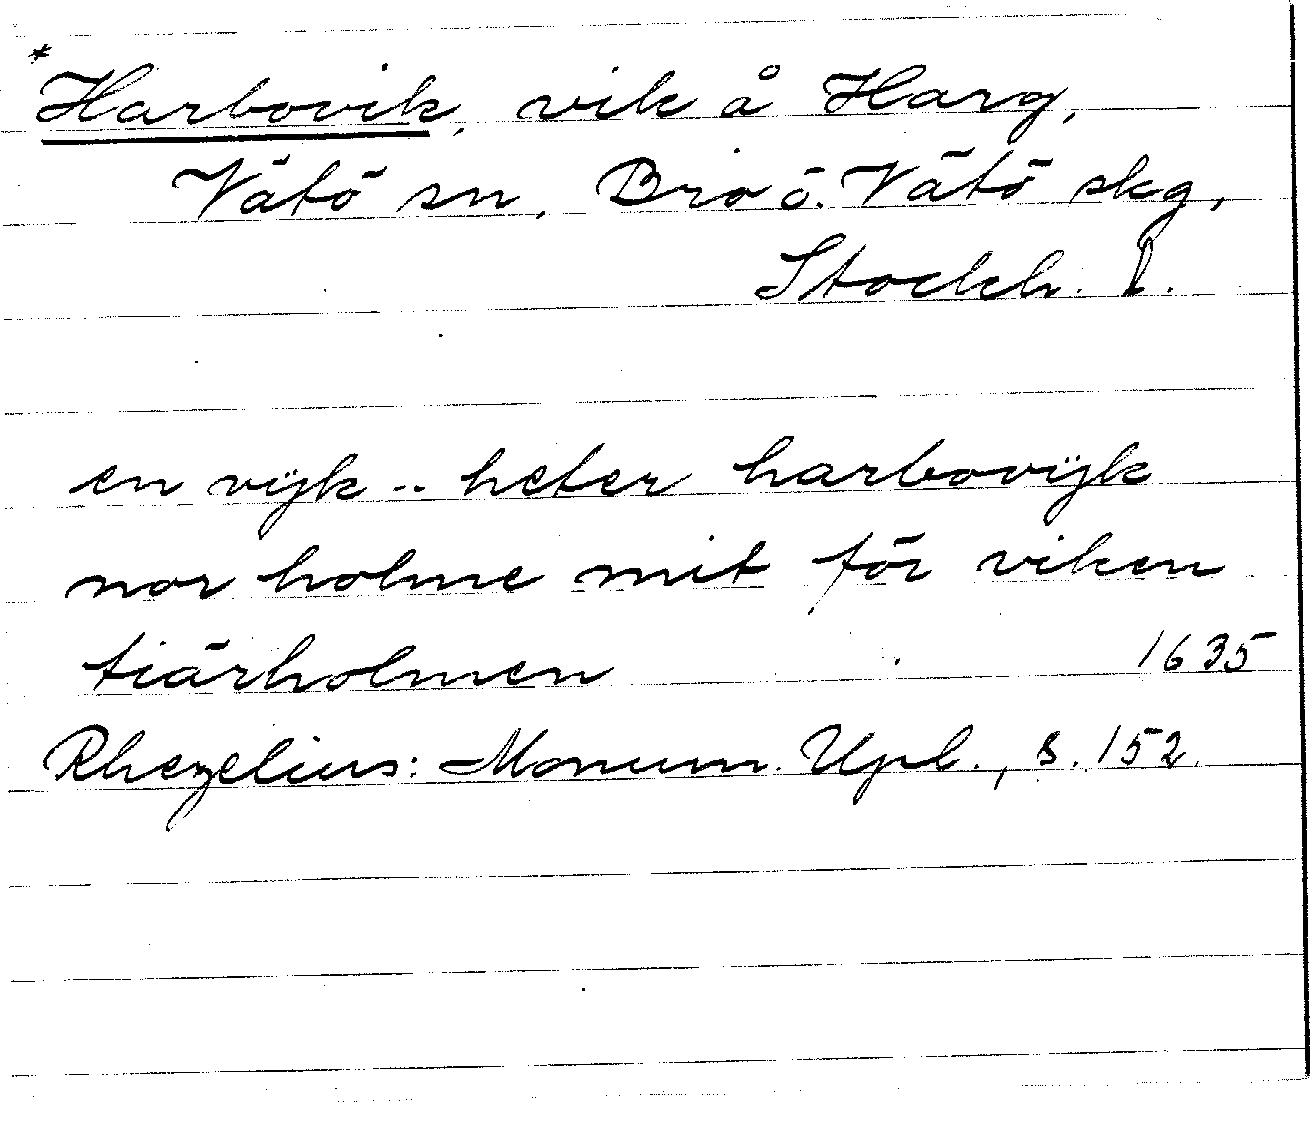 *Harbovik, vik å Harg,
Vätö sn, Bro o. Vätö skg,
Stockh. l.
en vijk .. heter harbovÿk
nor holme mit för viken
tiärholmen 1635
Rhezelius: Monum. Upl., s. 152.